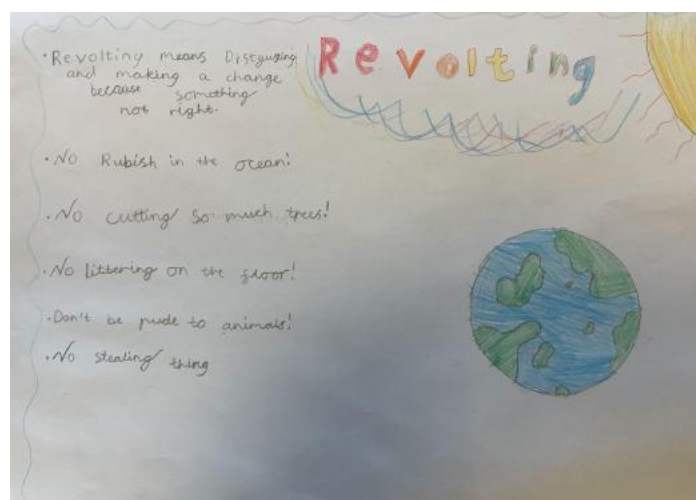 Revolting
• Revolting means Distgusing
and making a change
because something
not right.
• No Rubish in the ocean!
• No cutting so much trees!
• No littering on the floor!
• Don't be rude to animals!
• No stealing thing